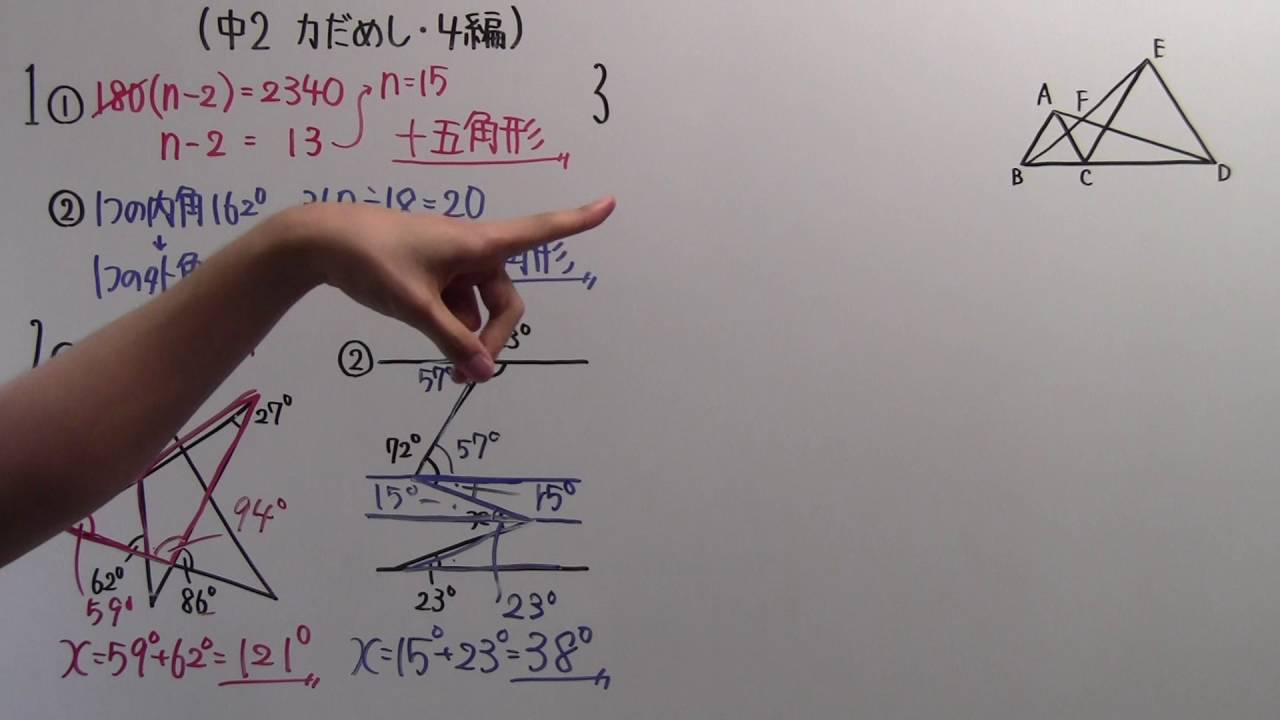 (中2 力だめし・4編)
1 ① 180(n-2)=2340 n=15
n-2 = 13 十五角形
② 1つの内角162° ÷18=20
1つの外角 角形
27°
94°
62°
59°
86°
x=59°+62°=121°
②
57°
72° 57°
15° 15°
x
23° 23°
x=15°+23°=38°
3
E
A F
B C D